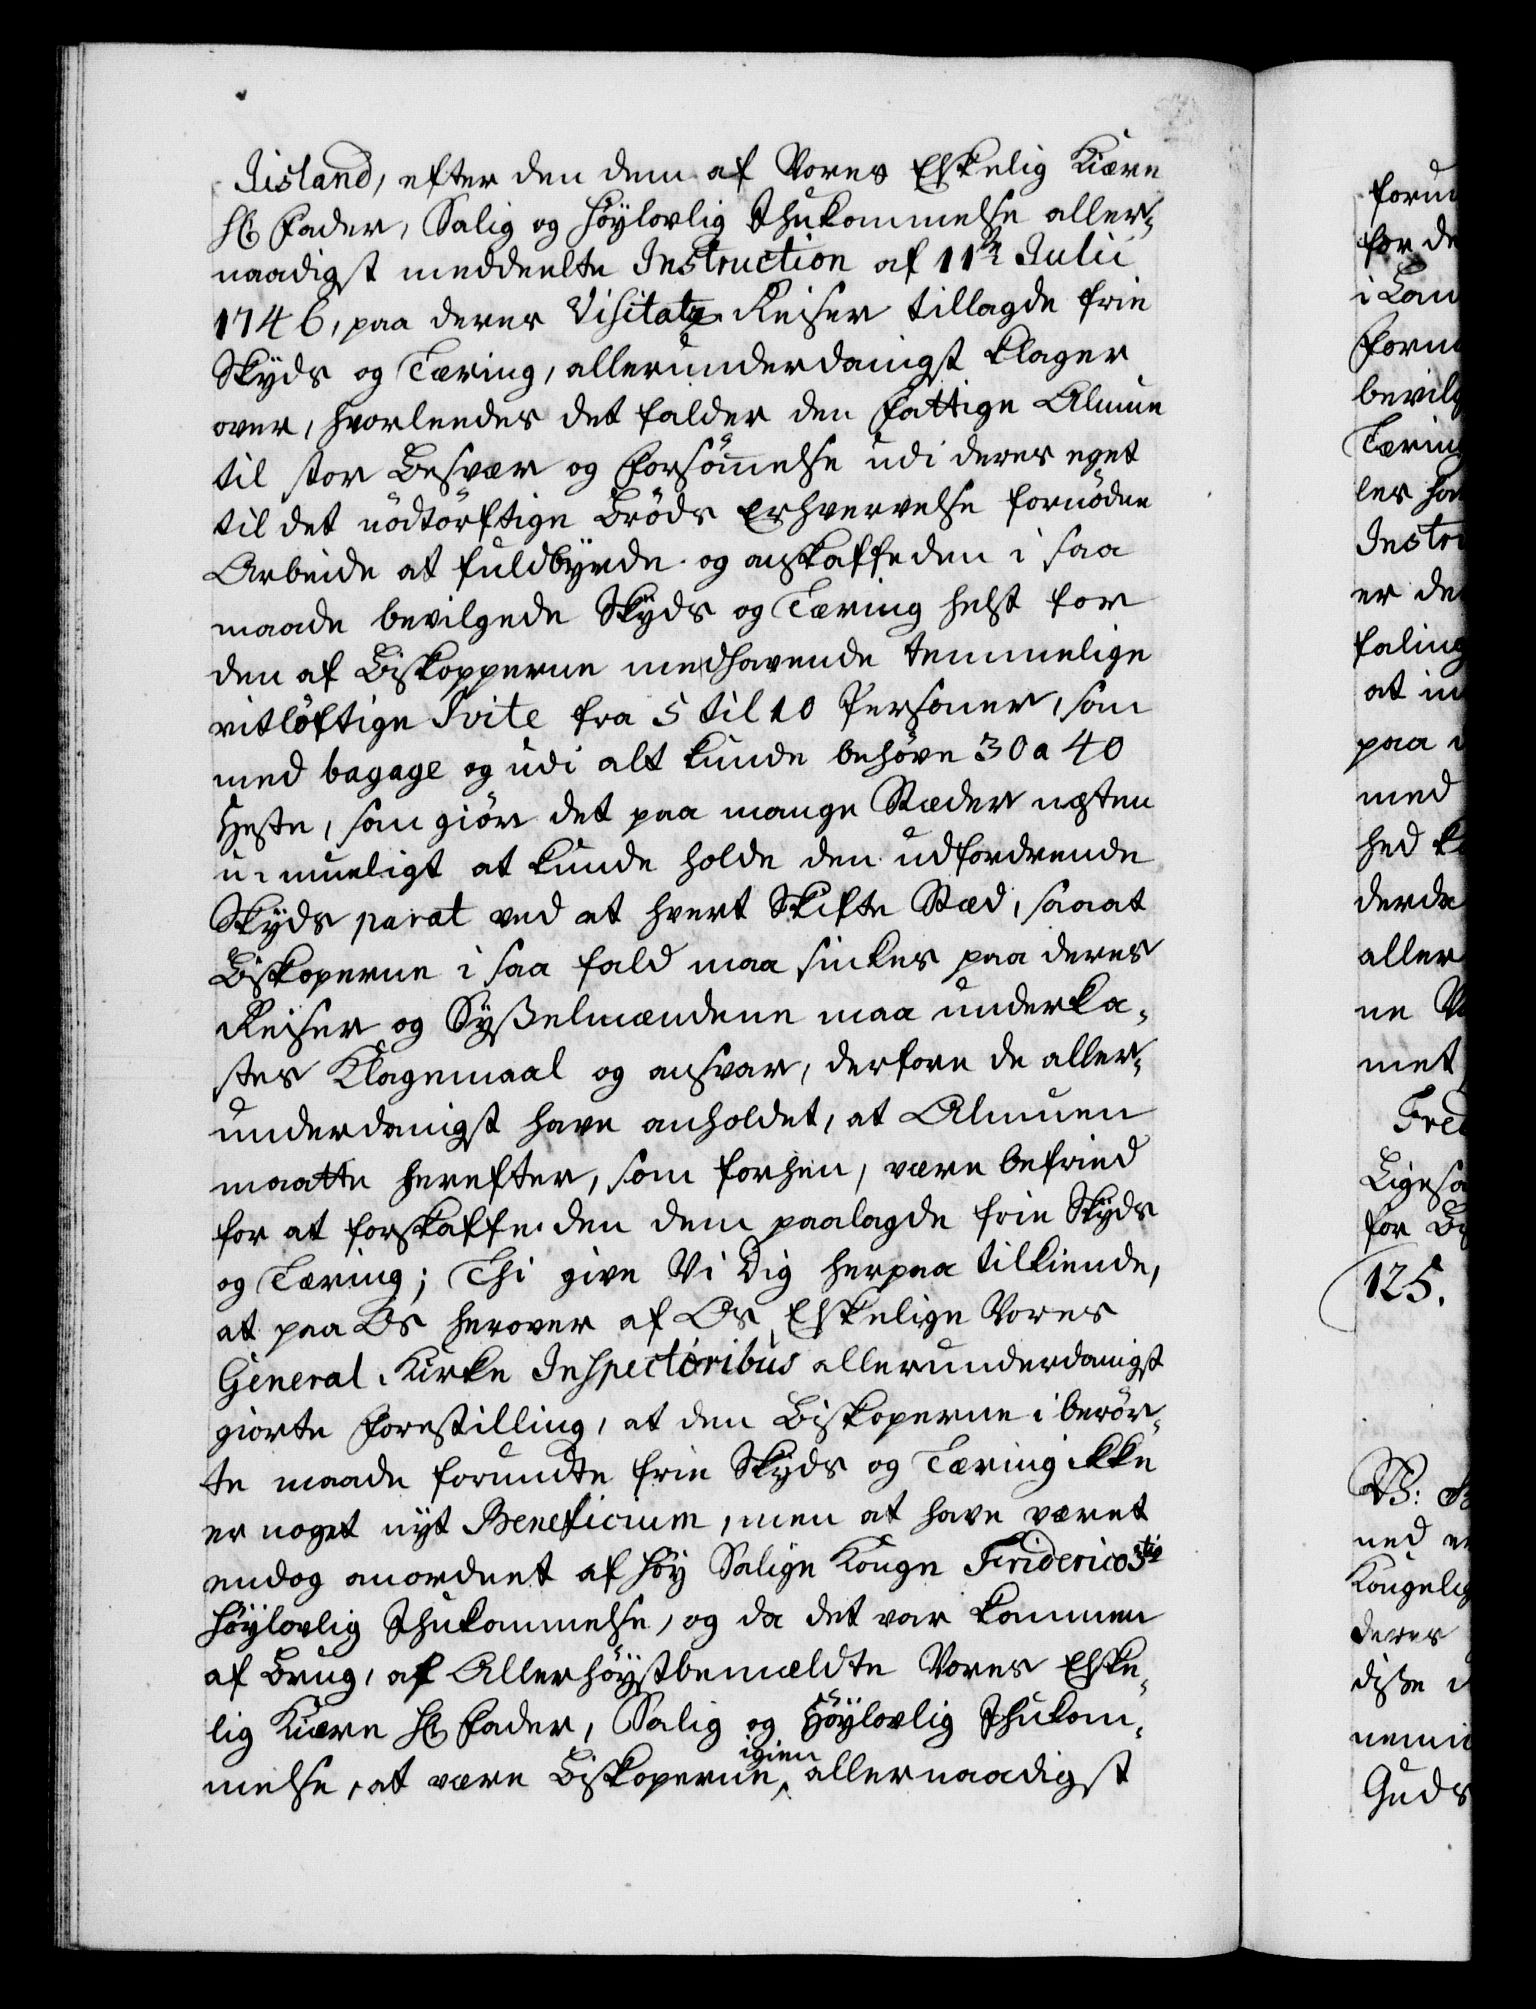 Iisland, efter den dem af Vores Elskelig Kiære
Hr Fader, Salig og Höylovlig Ihukommelse aller-
naadigst meddeelte Instruction af 11te Julii
1746, paa deres Visitatz Reiser tillagde frie
Skyds og Tæring, allerunderdanigst klager
over, hvorleedes det falder den fattige Almue
til stor Besvær og Forsömmelse udi deres eget
til det nödtörftige Bröds Erhvervelse fornödne
Arbeide at fuldbyrde og anskaffe den i saa
maade bevilgede Skyds og Tæring helst for
den af Biskopperne medhavende temmelige
vitlöftige Svite fra 5 til 10 Personer, som
med bagage og udi alt kunde behöve 30 a 40
Heste, som giör det paa mange Stæder næsten
u-mueligt at kunde holde den udfordrende
Skyds parat ved et hvert Skifte Stæd, saa at
Biskoperne i saa fald maa sinkes paa deres
Reiser og Sysselmændene maa underka-
stes Klagemaal og ansvar, derfore de aller-
underdanigst have anholdet, at Almuen
maatte herefter, som forhen, være befried
for at forskaffe den dem paalagde frie Skyds
og Tæring; Thi give Vi Dig herpaa tilkiende,
at paa Os herover af Os Elskelige Vores
General Kirke Inspectoribus allerunderdanigst
giorte Forestilling, at den Biskoperne i berör-
te maade forundte frie Skyds og Tæring ikke
er noget nyt Beneficium, men at have været
endog anordnet af Höy Salige Konge Friderico 3tio
Höylovlig Ihukommelse, og da det var kommen
af Brug, af Allerhöystbemældte Vores Elske-
lig Kiære Hr Fader, Salig og Höylovlig Ihukom-
melse, at være Biskoperne igien allernaadigst
125.